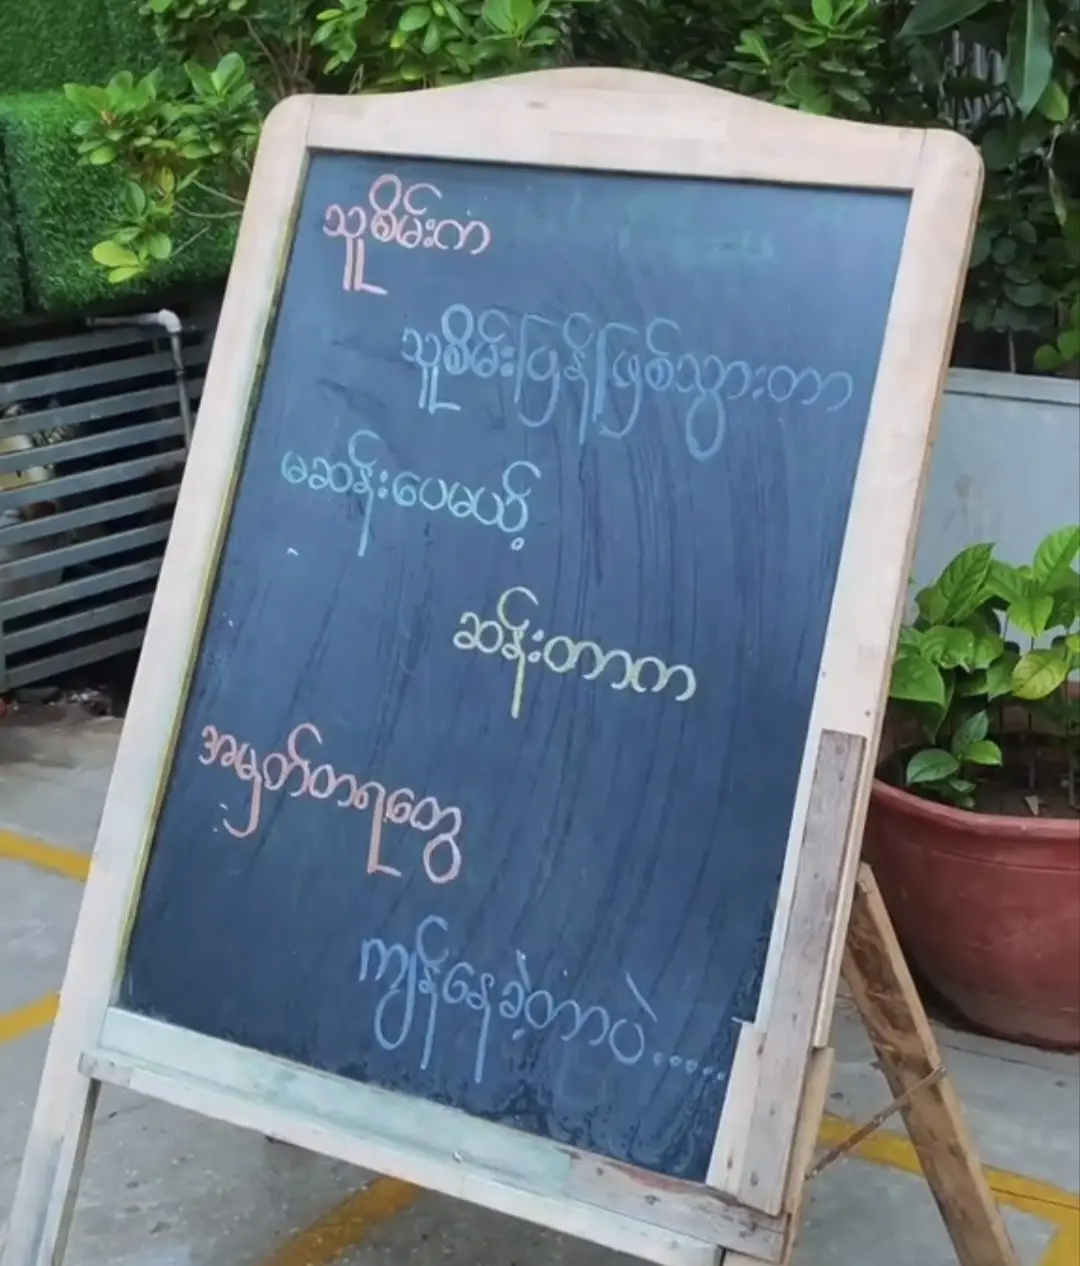 သူစိမ်းက
သူစိမ်းပြန်ဖြစ်သွားတာ
မဆန်းပေမယ့်
ဆန်းတာက
အမှတ်တရတွေ
ကျန်နေခဲ့တာပဲ.....